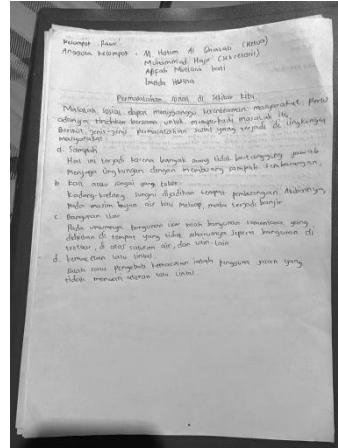 Kelompok Pasar
Anggota kelompok : M Hatim Al Ghazali (Ketua)
Muhammad Hajir (Sekretaris)
Afifah Mutiara
Imelda Husna
Permasalahan sosial di Sekitar kita
Masalah sosial dapat mengganggu ketentraman masyarakat. Perlu
adanya tindakan bersama untuk memperbaiki masalah itu
Berikut jenis-jenis permasalahan sosial yang terjadi di lingkungan
masyarakat.
a. Sampah
Hal ini terjadi karena banyak orang tidak bertanggung jawab
menjaga lingkungan dengan membuang sampah sembarangan.
b. Kali atau sungai yang kotor
Kadang-kadang sungai dijadikan tempat pembuangan. Akibatnya,
pada musim hujan air kali meluap, maka terjadi banjir
c. Bangunan liar
Pada umumnya bangunan liar ialah bangunan sementara yang
didirikan di tempat yang tidak seharusnya seperti bangunan di
trotoar, di atas saluran air, dan lain-lain
d. kemacetan lalu lintas.
Salah satu penyebab kemacetan ialah pengguna jalan yang
tidak mematuhi aturan lalu lintas.